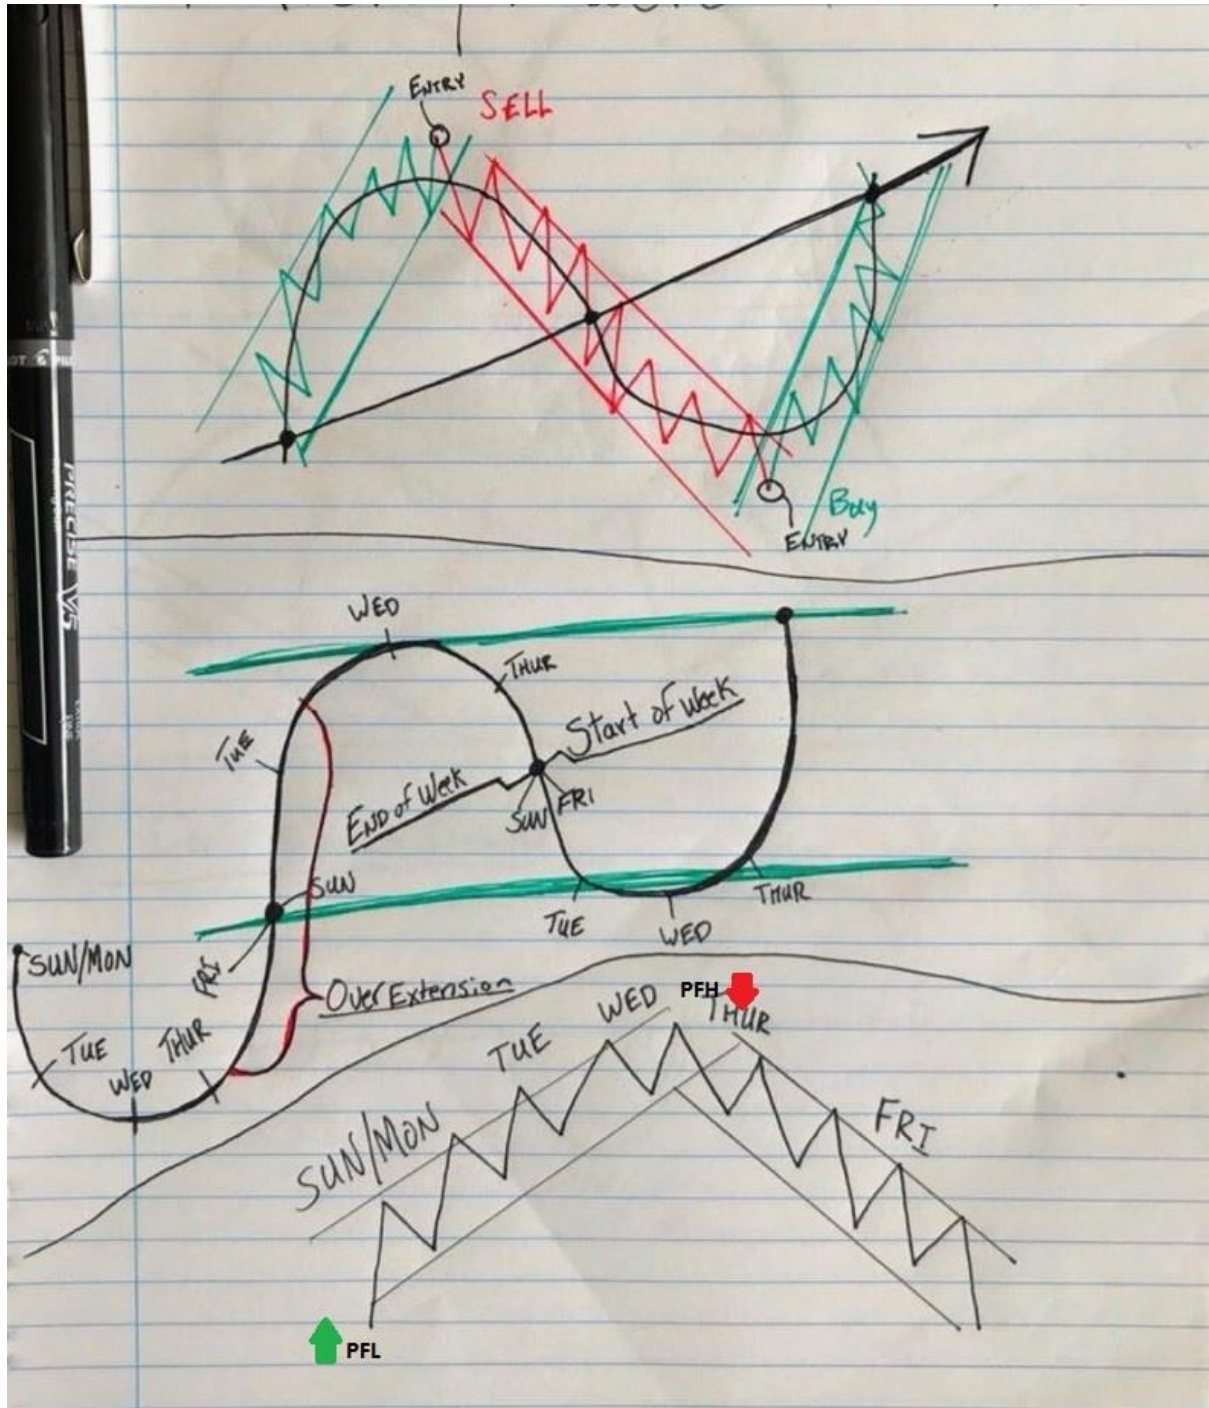 ENTRY
SELL
Buy
ENTRY
PRECISE V5
WED
THUR
TUE
Start of Week
End of Week
SUN
FRI
SUN
TUE
WED
THUR
SUN/MON
FRI
Over Extension
TUE
WED
THUR
WED
PFH
THUR
TUE
SUN/MON
FRI
PFL